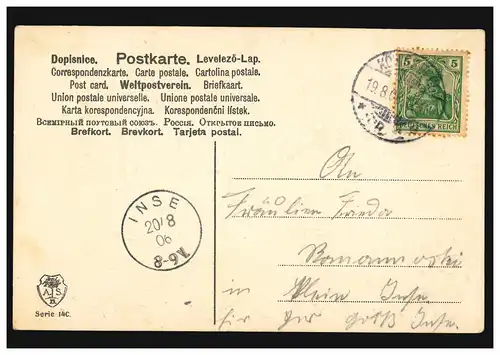 Dopisnice. Postkarte. Levelező-Lap.
Correspondenzkarte. Carte postale. Cartolina postale.
Post card. Weltpostverein. Briefkaart.
Union postale universelle. Unione postale universale.
Karta korespondencyjna. Korespondenční lístek.
Всемірный почтовый союзъ. Россія. Открытое письмо.
Brefkort. Brevkort. Tarjeta postal.
19.8.
5 5
DEUTSCHES REICH
An
Fräulein Frieda
in Klein Inse
INSE
20/8
06
8-9V.
A S
B
Serie 14C.